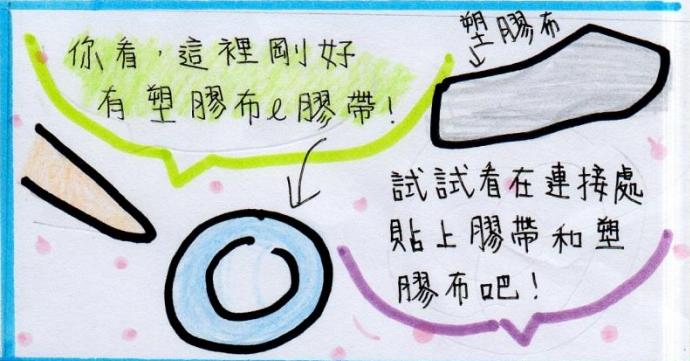 你看，這裡剛好
有塑膠布ㄟ膠帶！
塑膠布
試試看在連接處
貼上膠帶和塑
膠布吧！